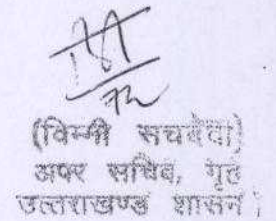 (विम्मी सचदेवा)
अपर सचिव, गृह
उत्तराखण्ड शासन।